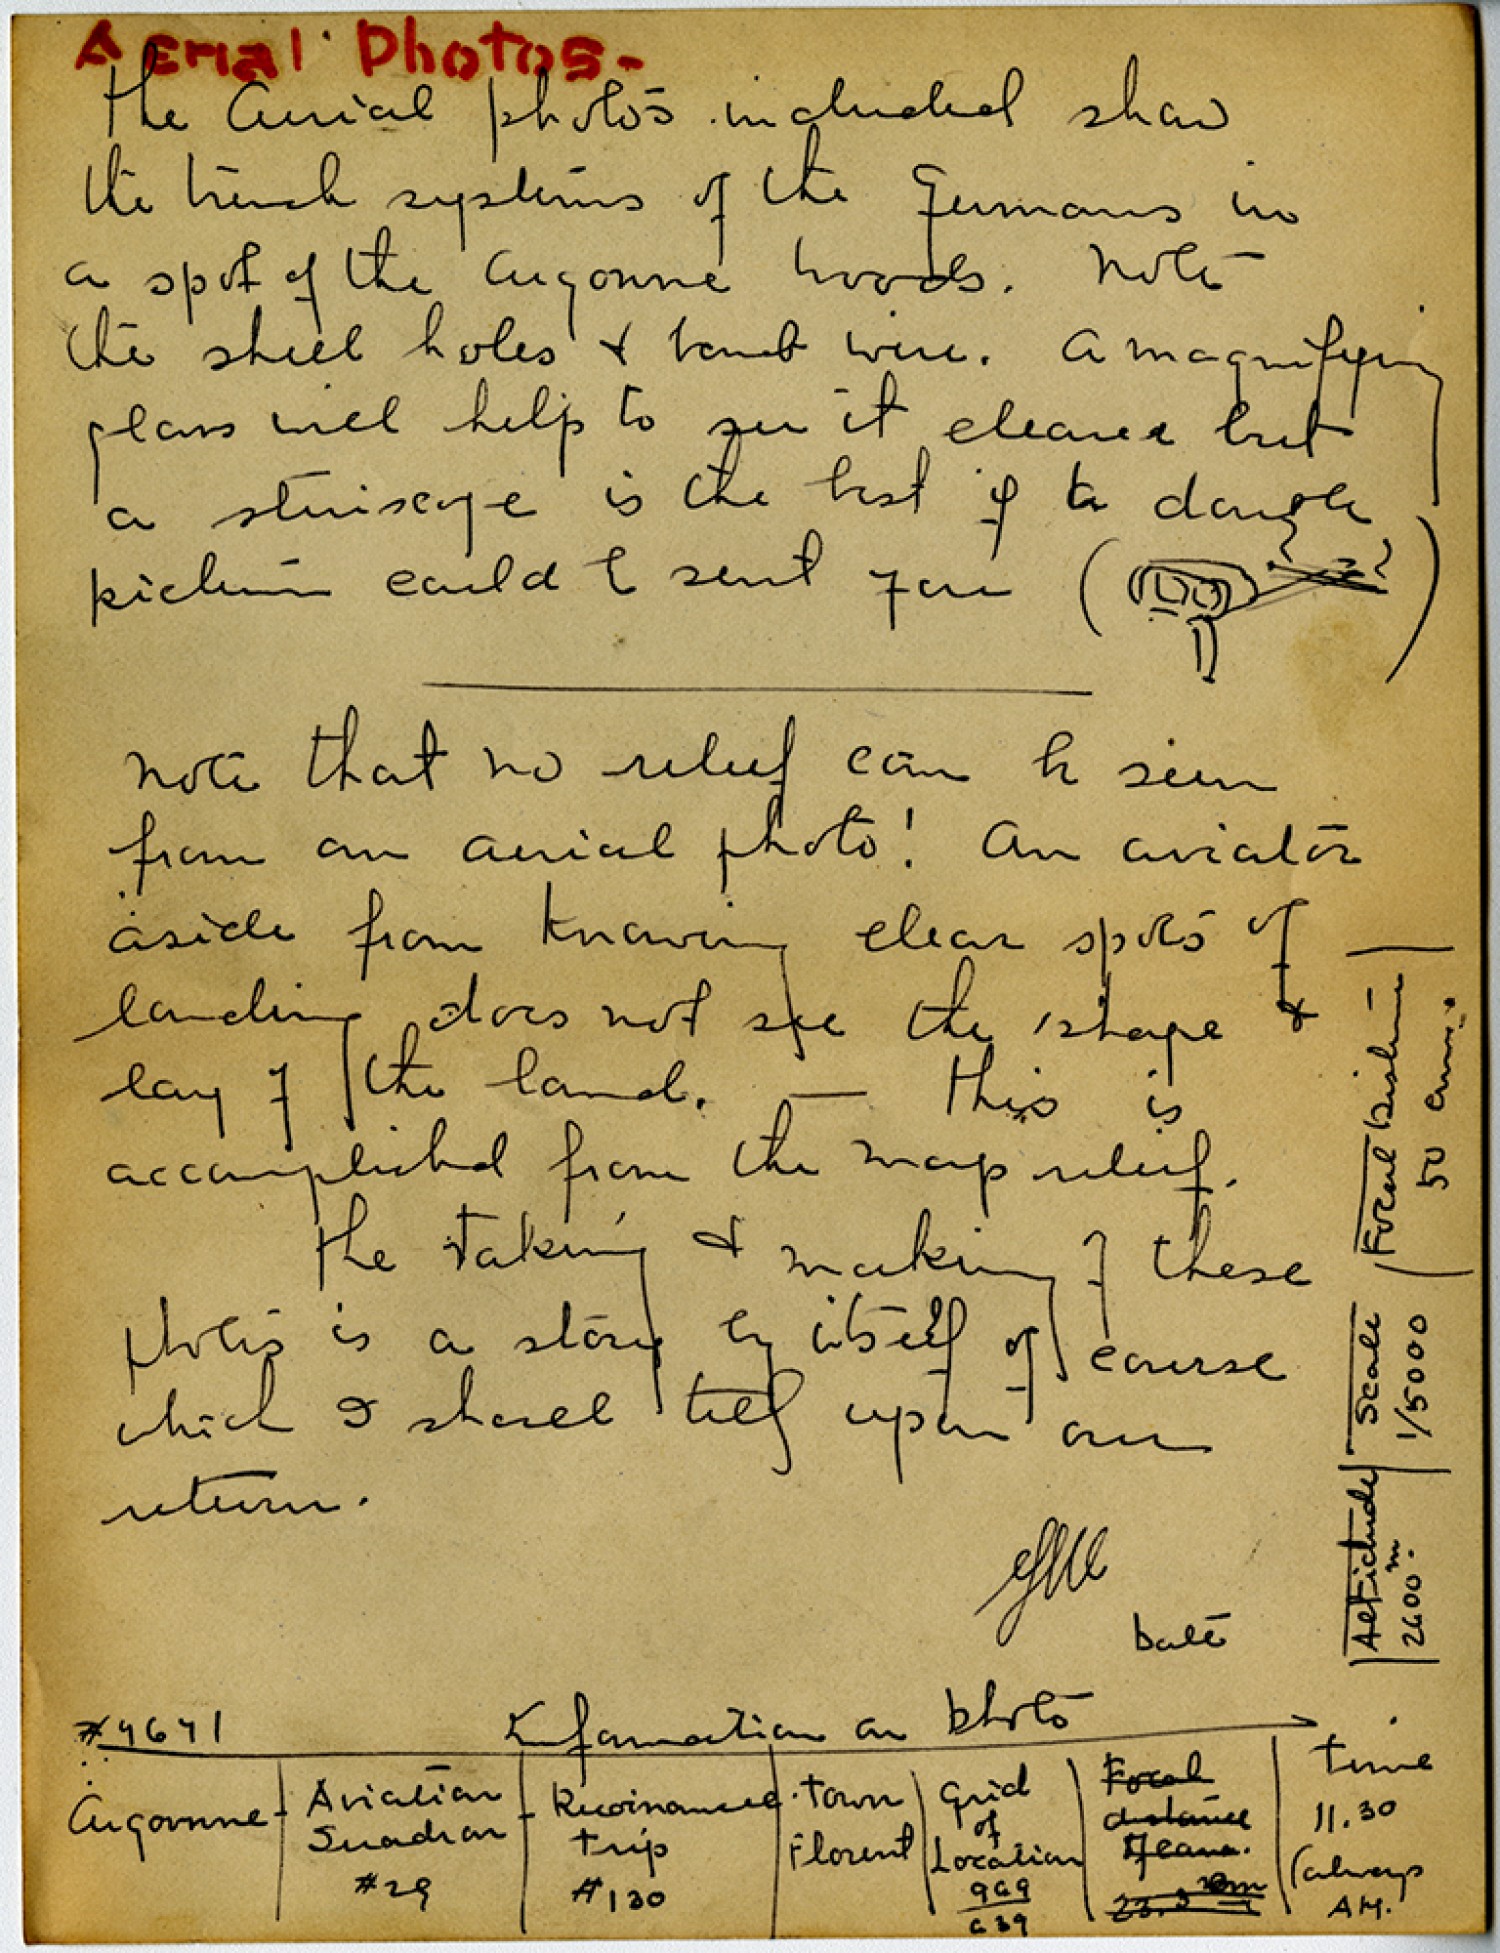 Aerial Photos-
The aerial photos included show
the trench systems of the Germans in
a spot of the Argonne woods. Note
the shell holes & barb wire. A magnifying
glass will help to see it clearer but
a steriscope is the best if a double
picture could be sent you (
Note that no relief can be seen
from an aerial photo! An aviator
aside from knowing clear spots of
landing does not see the shape &
lay of the land. — This is
accomplished from the map relief.
The taking & making of these
photos is a story by itself of course
which I shall tell upon our
return.
Date
Altitude 2600 m.
Scale 1/5000
Focal Distance 50 cm.
Information on Photo
Argonne
Aviation
Squadron
#29
Trip
#130
Town
Florent
Grid
of
Location
969
639
Focal
distance
Time
11.30
(always
AM.